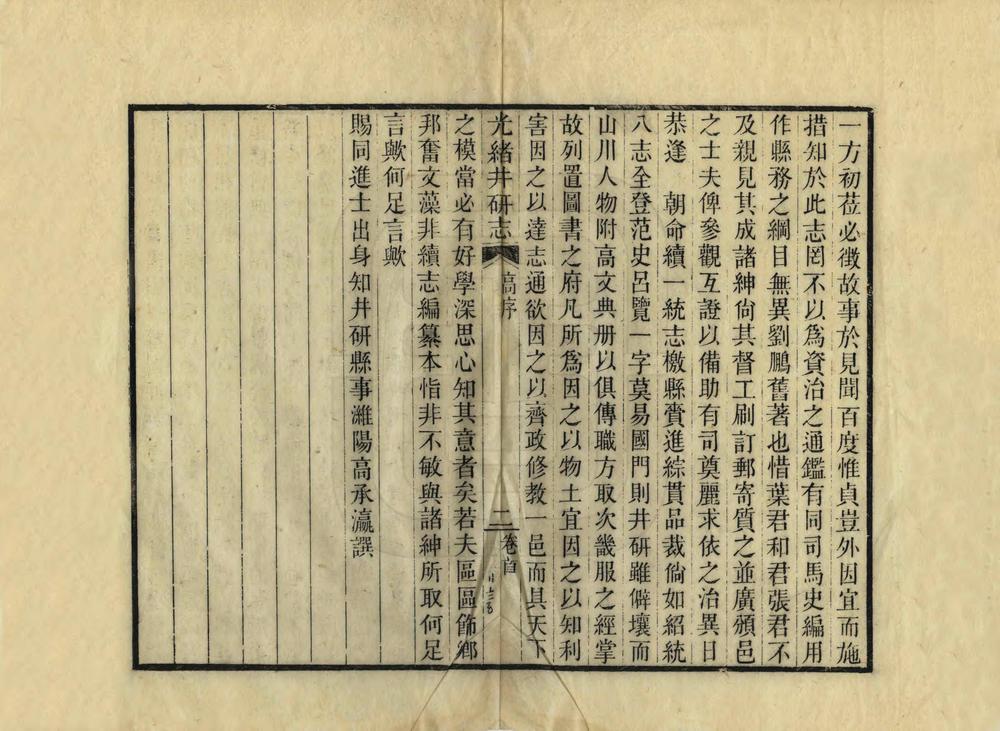 一方初莅必徵故事於見聞百度惟貞豈外因宜而施
措知於此志罔不以為資治之通鑑有同司馬史編用
作縣務之綱目無異劉鵬舊著也惜葉君和君張君不
及親見其成諸紳尙其督工刷訂郵寄質之並廣頒邑
之士夫俾參觀互證以備助有司奠麗求依之治異日
恭逢　朝命續一統志檄縣賫進綜貫品裁倘如紹統
八志全登范史呂覽一字莫易國門則井研雖僻壤而
山川人物附高文典册以俱傳職方取次畿服之經掌
故列置圖書之府凡所為因之以物土宜因之以知利
害因之以達志通欲因之以齊政修教一邑而具天下
光緒井研志　高序　二　卷首
之模當必有好學深思心知其意者矣若夫區區飾鄉
邦奮文藻非續志編纂本恉非不敏與諸紳所取何足
言歟何足言歟
賜同進士出身知井研縣事濰陽高承瀛譔